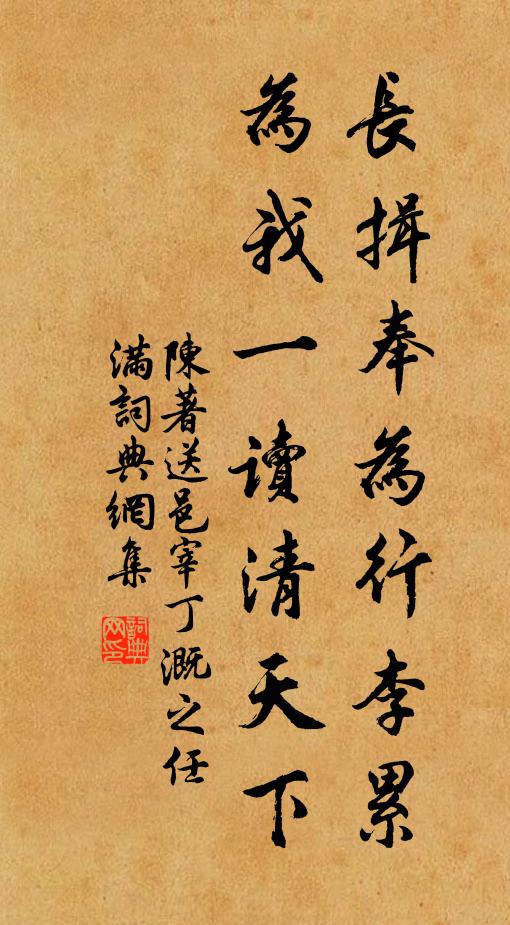 長揖奉為行李累
為我一讀清天下
陳著送邑宰丁溉之任
滿詞典網集
詞典網印